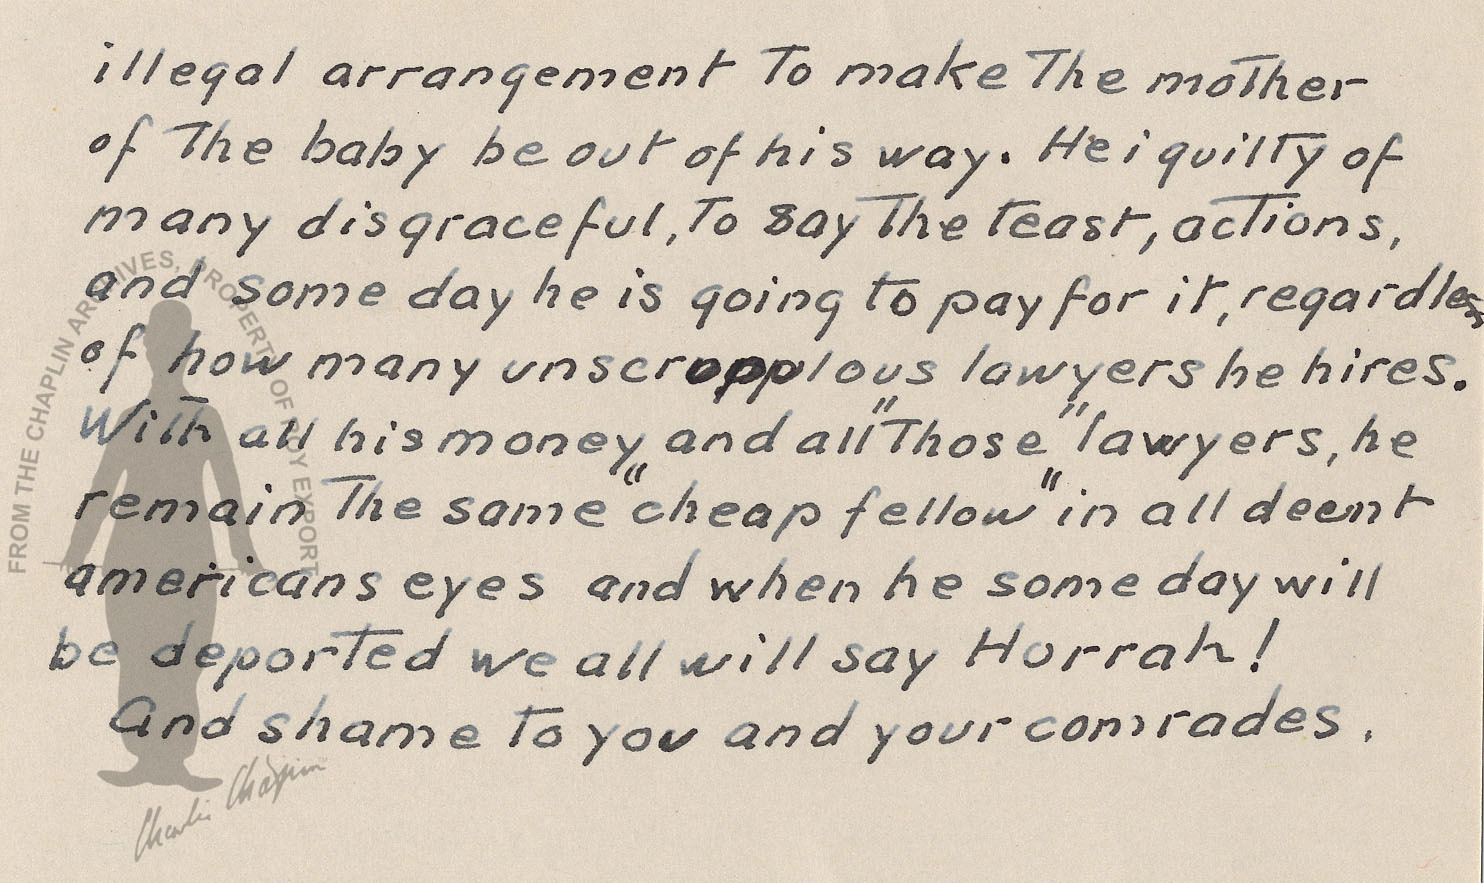 illegal arrangement To make The mother
of The baby be out of his way. He i guilty of
many disgraceful, To say The teast, actions,
and some day he is going to pay for it, regardless
of how many unscropplous lawyers he hires.
With all his money and all "Those" lawyers, he
remain The same "cheap fellow" in all deent
americans eyes and when he some day will
be deported we all will say Horrah!
And shame To you and your comrades.
FROM THE CHAPLIN ARCHIVES, PROPERTY OF ROY EXPORT
Charlie Chaplin